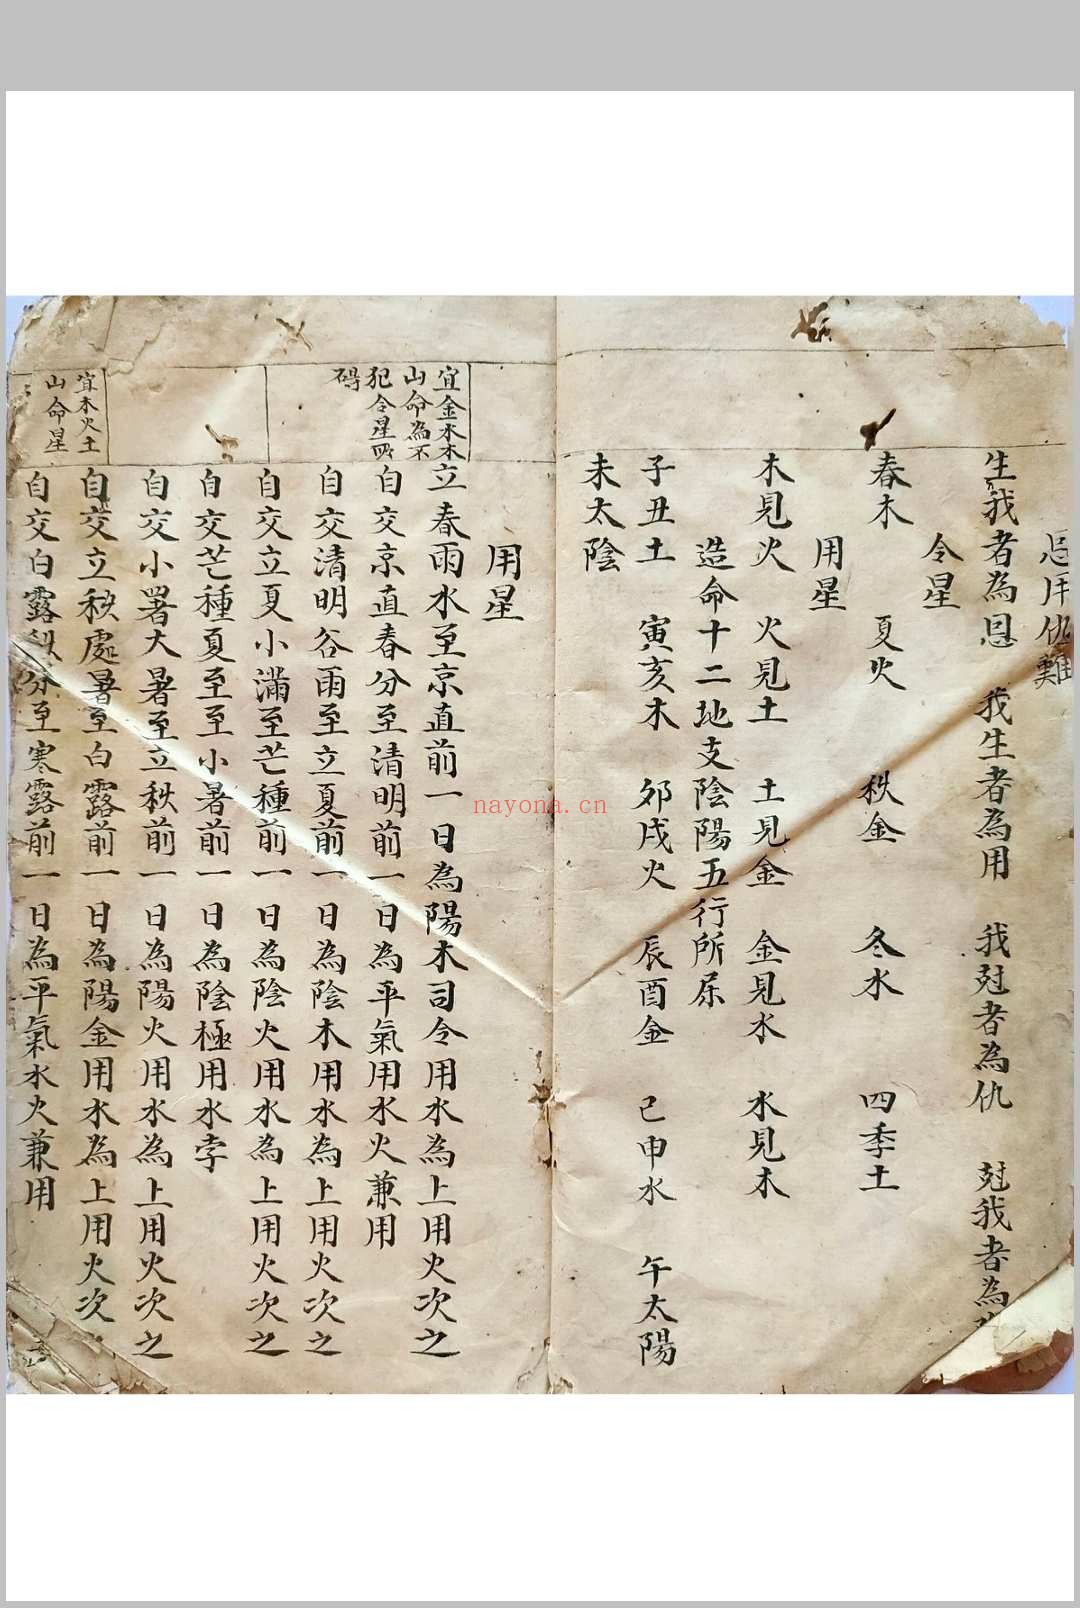 忌用仇難
生我者為恩 我生者為用 我尅者為仇 尅我者為
令星
春木 夏火 秋金 冬水 四季土
用星
木見火 火見土 土見金 金見水 水見木
造命十二地支陰陽五行所屬
子丑土 寅亥木 夘戌火 辰酉金 巳申水 午太陽
未太陰
用星
宜金水木
山命為不
犯令星所
碍
立春雨水至京直前一日為陽木司令用水為上用火次之
自交京直春分至清明前一日為平氣用水火兼用
自交清明谷雨至立夏前一日為陰木用水為上用火次之
自交立夏小滿至芒種前一日為陰火用水為上用火次之
自交芒種夏至至小暑前一日為陰極用水孛
自交小署大暑至立秋前一日為陽火用水為上用火次之
宜木火土
山命星
自交立秋處暑至白露前一日為陽金用水為上用火次
自交白露秋分至寒露前一日為平氣水火兼用
nayona.cn